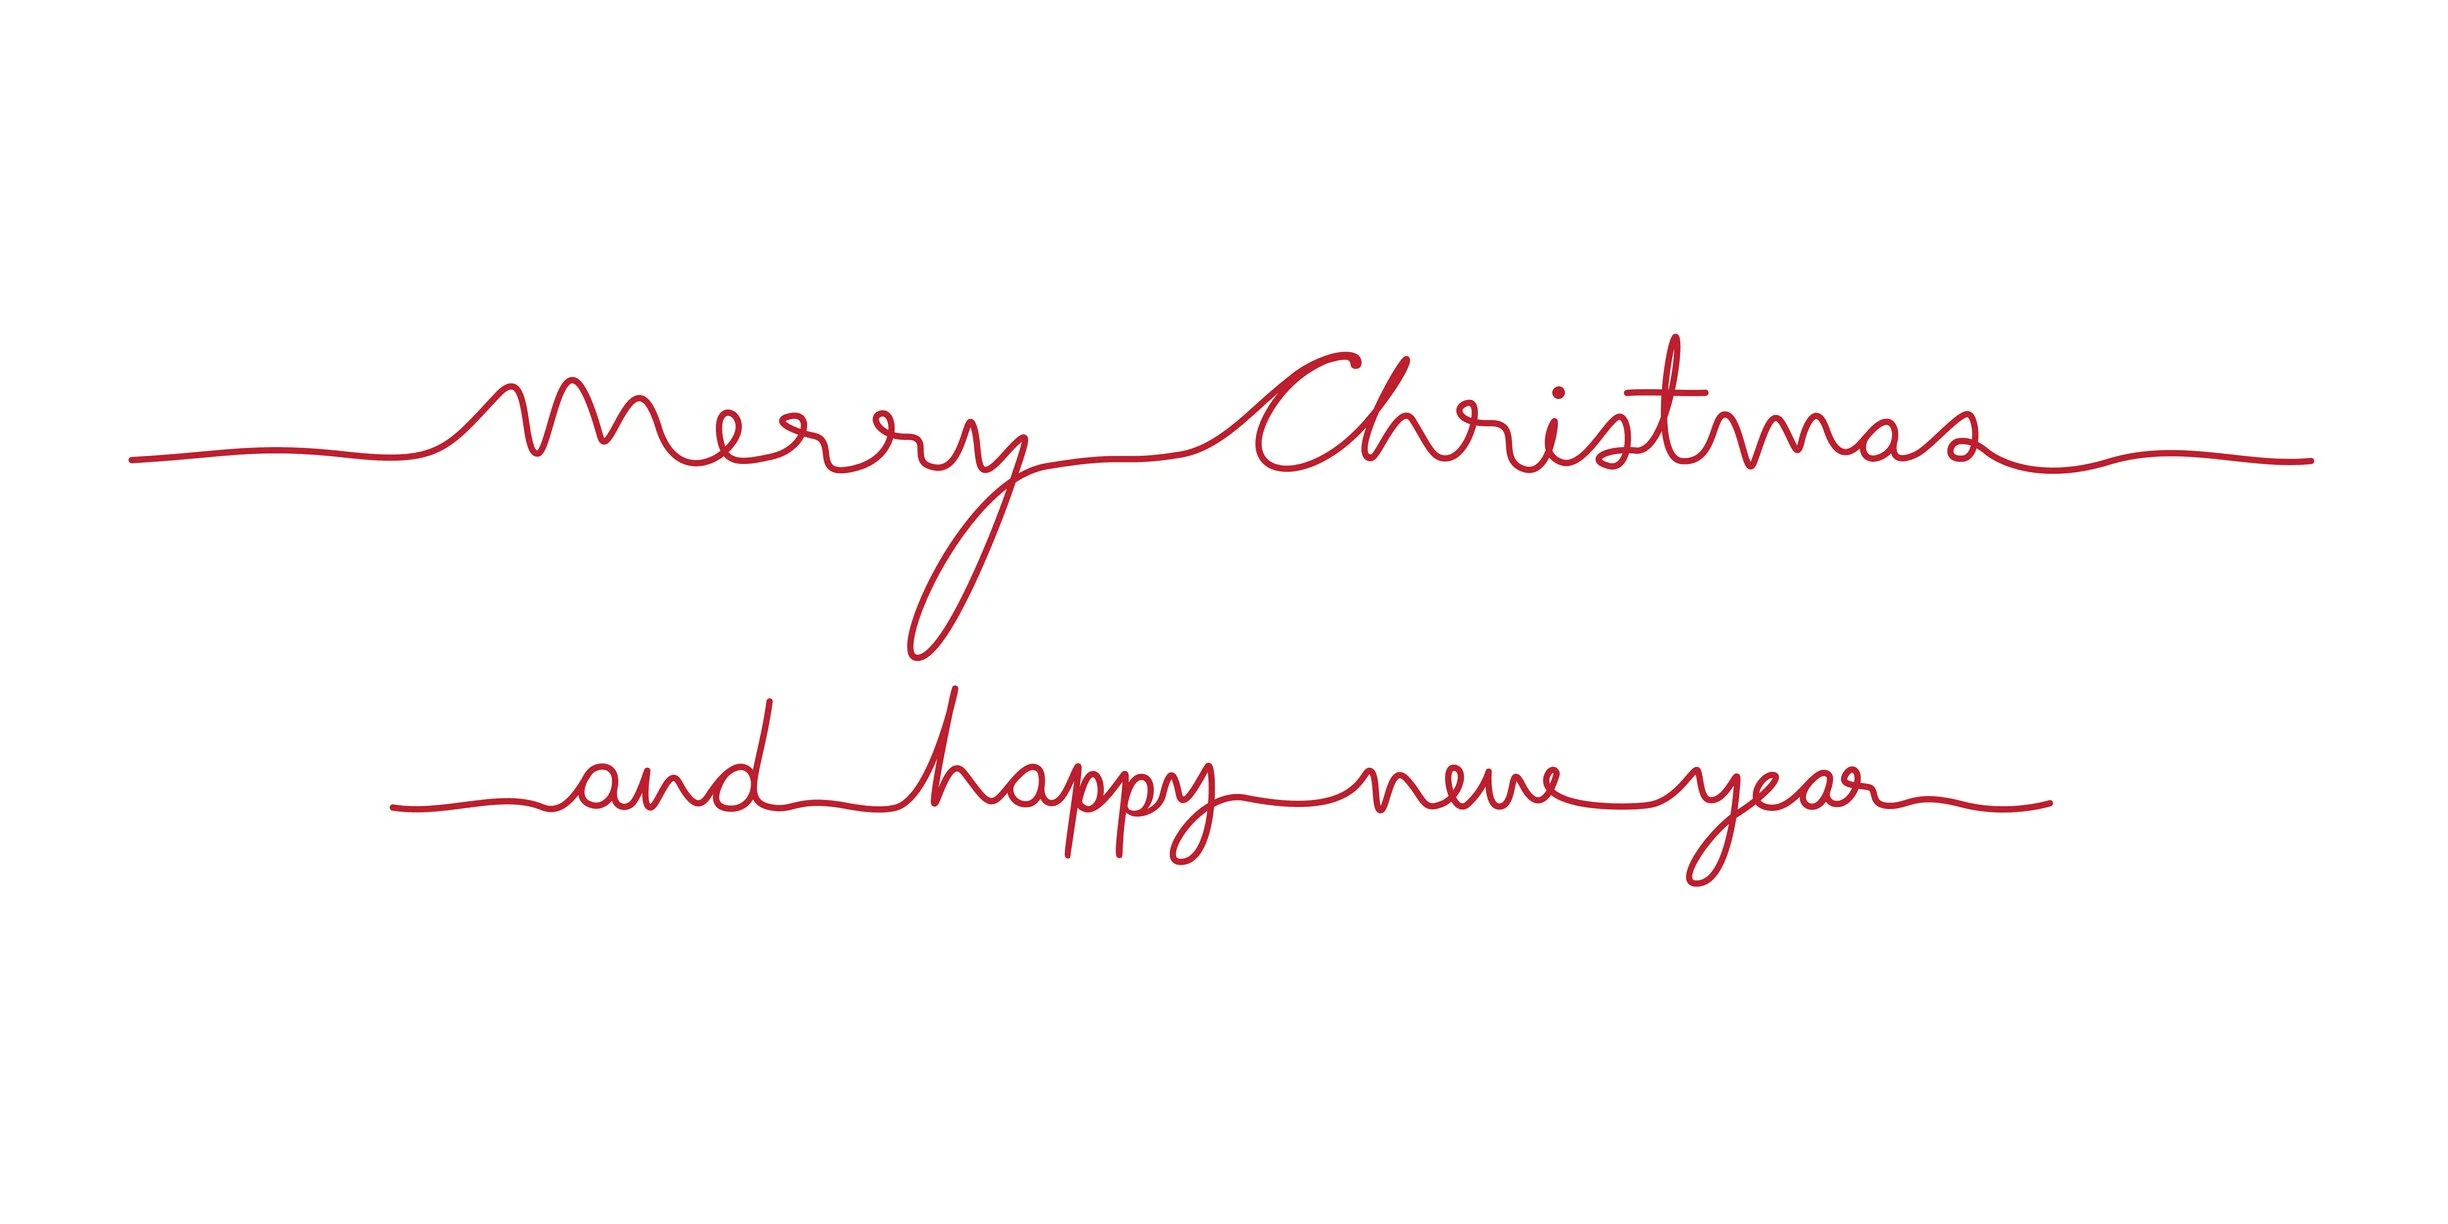 Merry Christmas
and happy new year